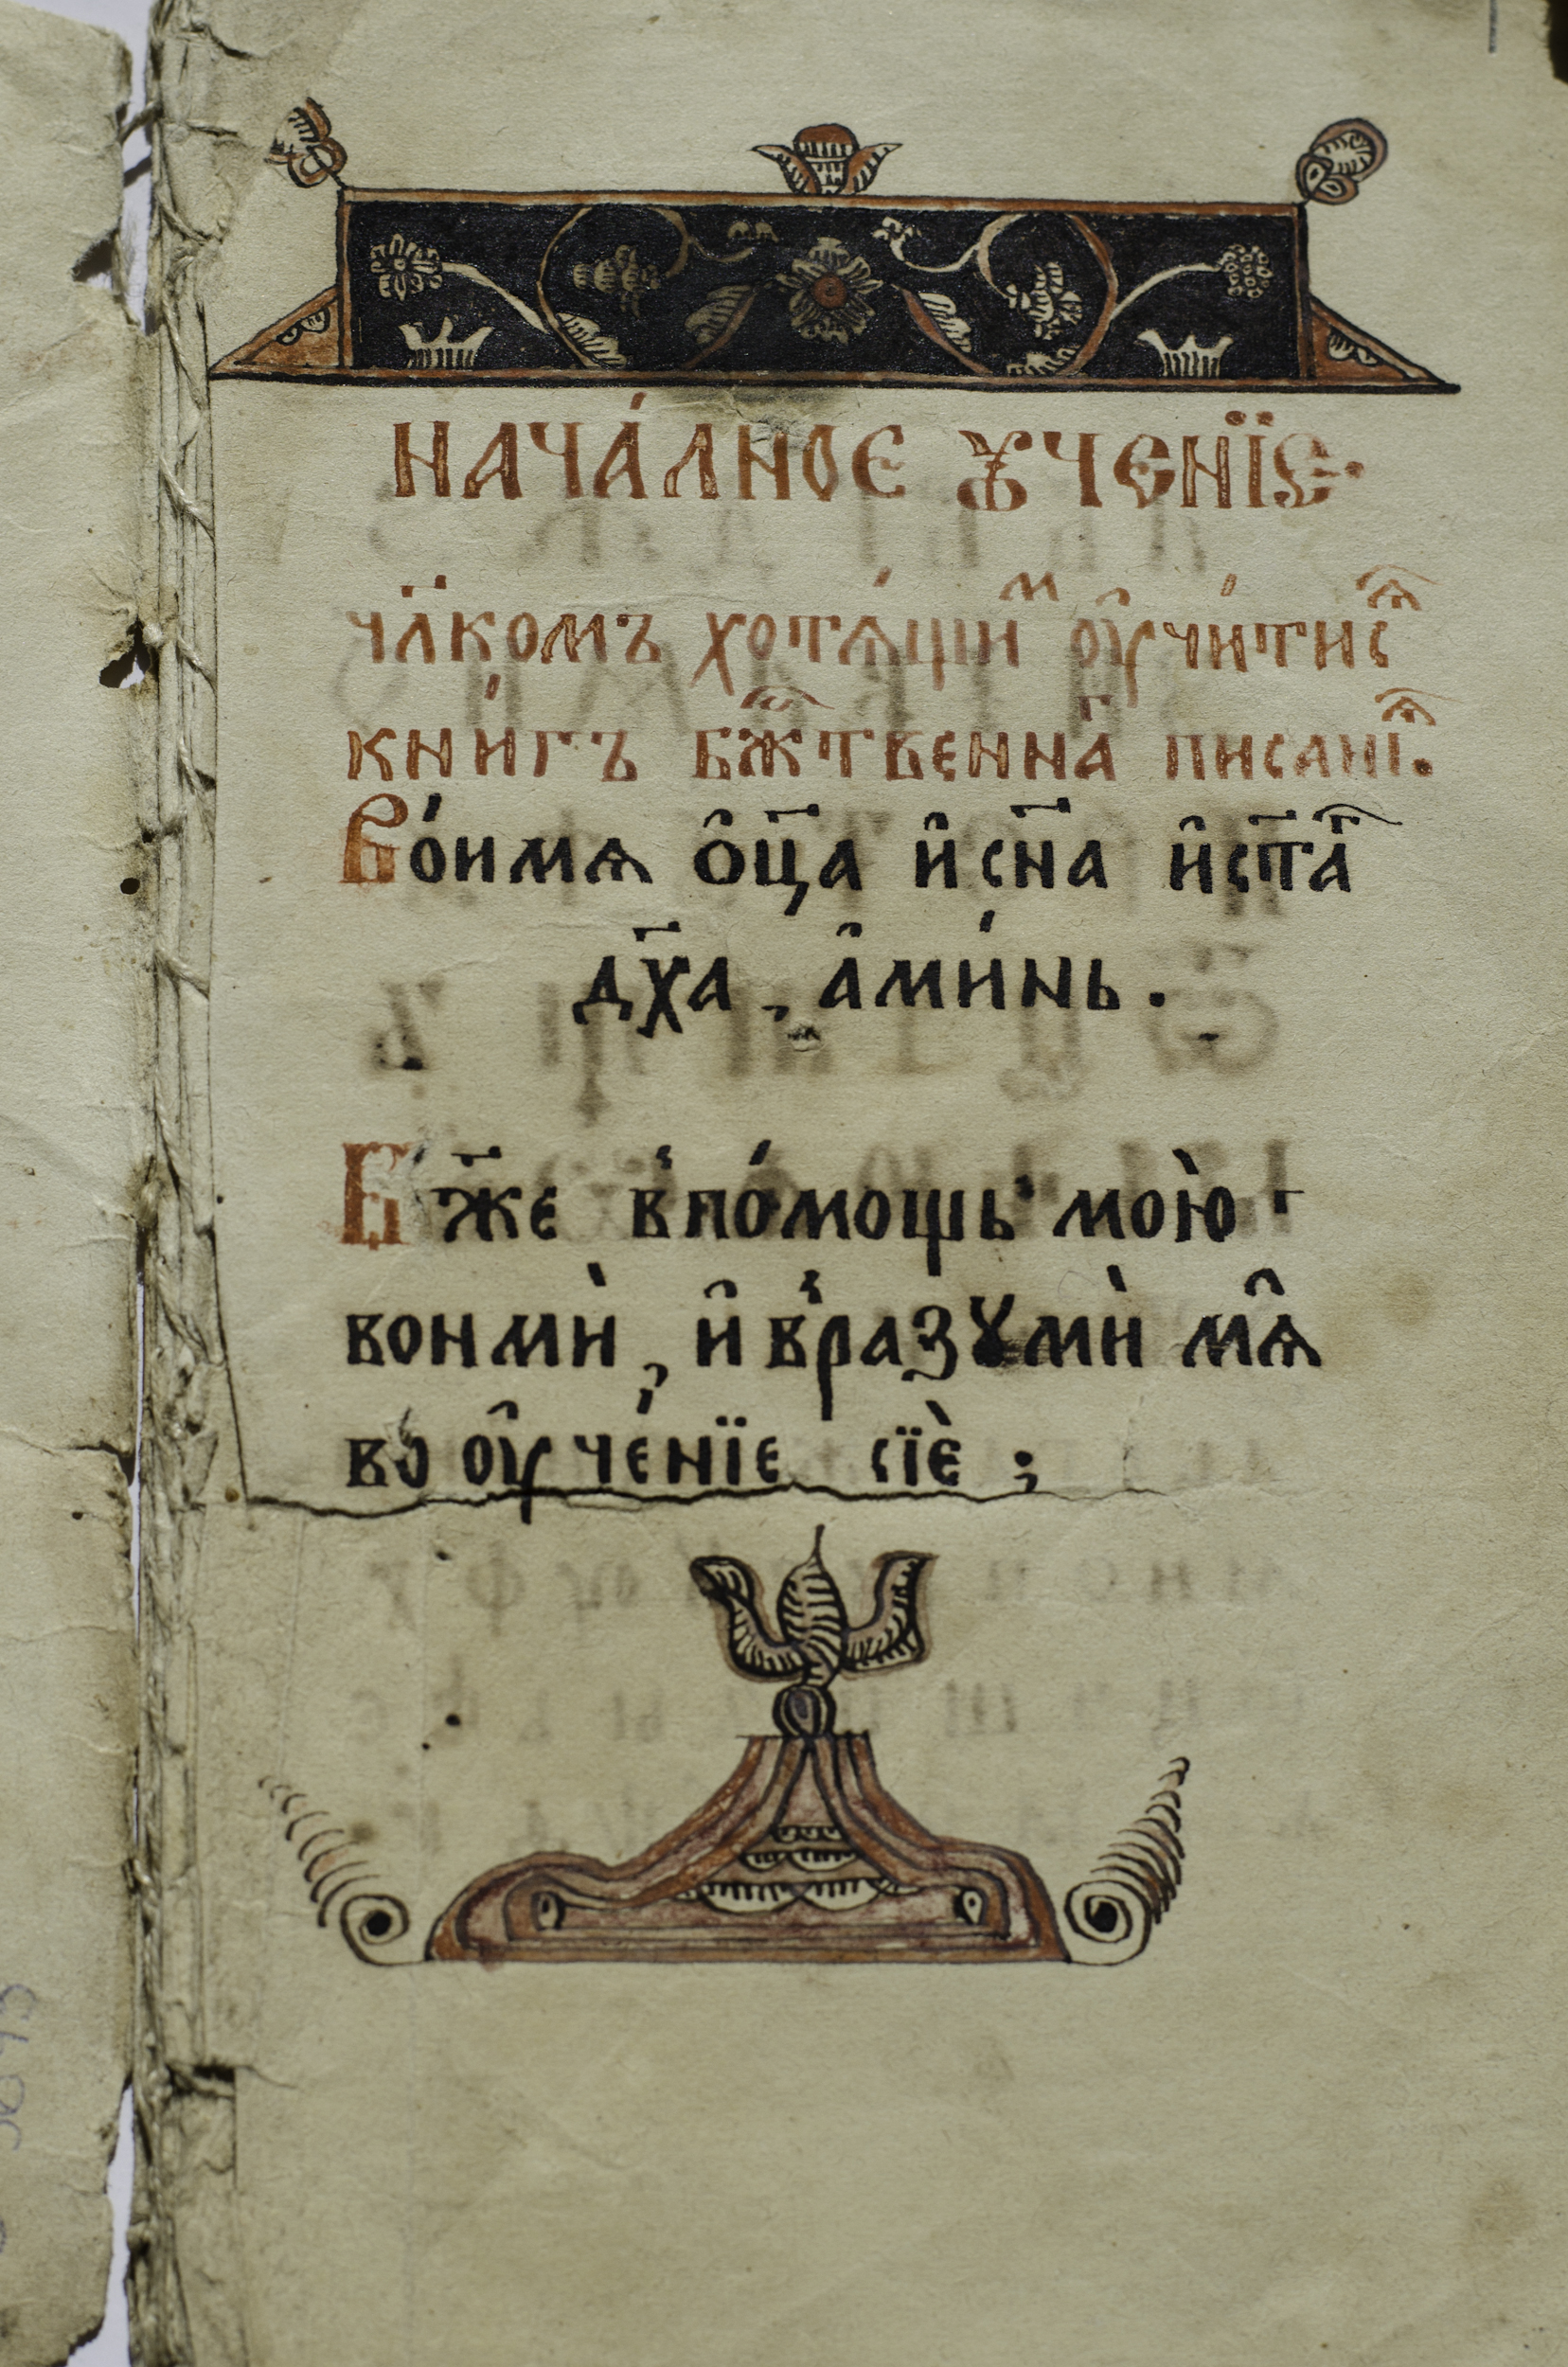 НАЧА́ЛНОЕ Ꙋ҆ЧЕНЇЕ·
чл҃комъ хотѧ́щиⷨ ᲂу҆чи́тисѧⷭ҇
кни́гъ бж҃ⷭтвеннаⷢ писанїѧ.
Во́имѧ ѻ҆ц҃а и҆сн҃а и҆ст҃аⷢ
дх҃а, а҆ми́нь.
Бж҃е в̾по́мощь мою̀
вонмѝ, и҆ в̾разꙋмѝ мѧ̑
во ᲂу҆че́нїе сїѐ ;